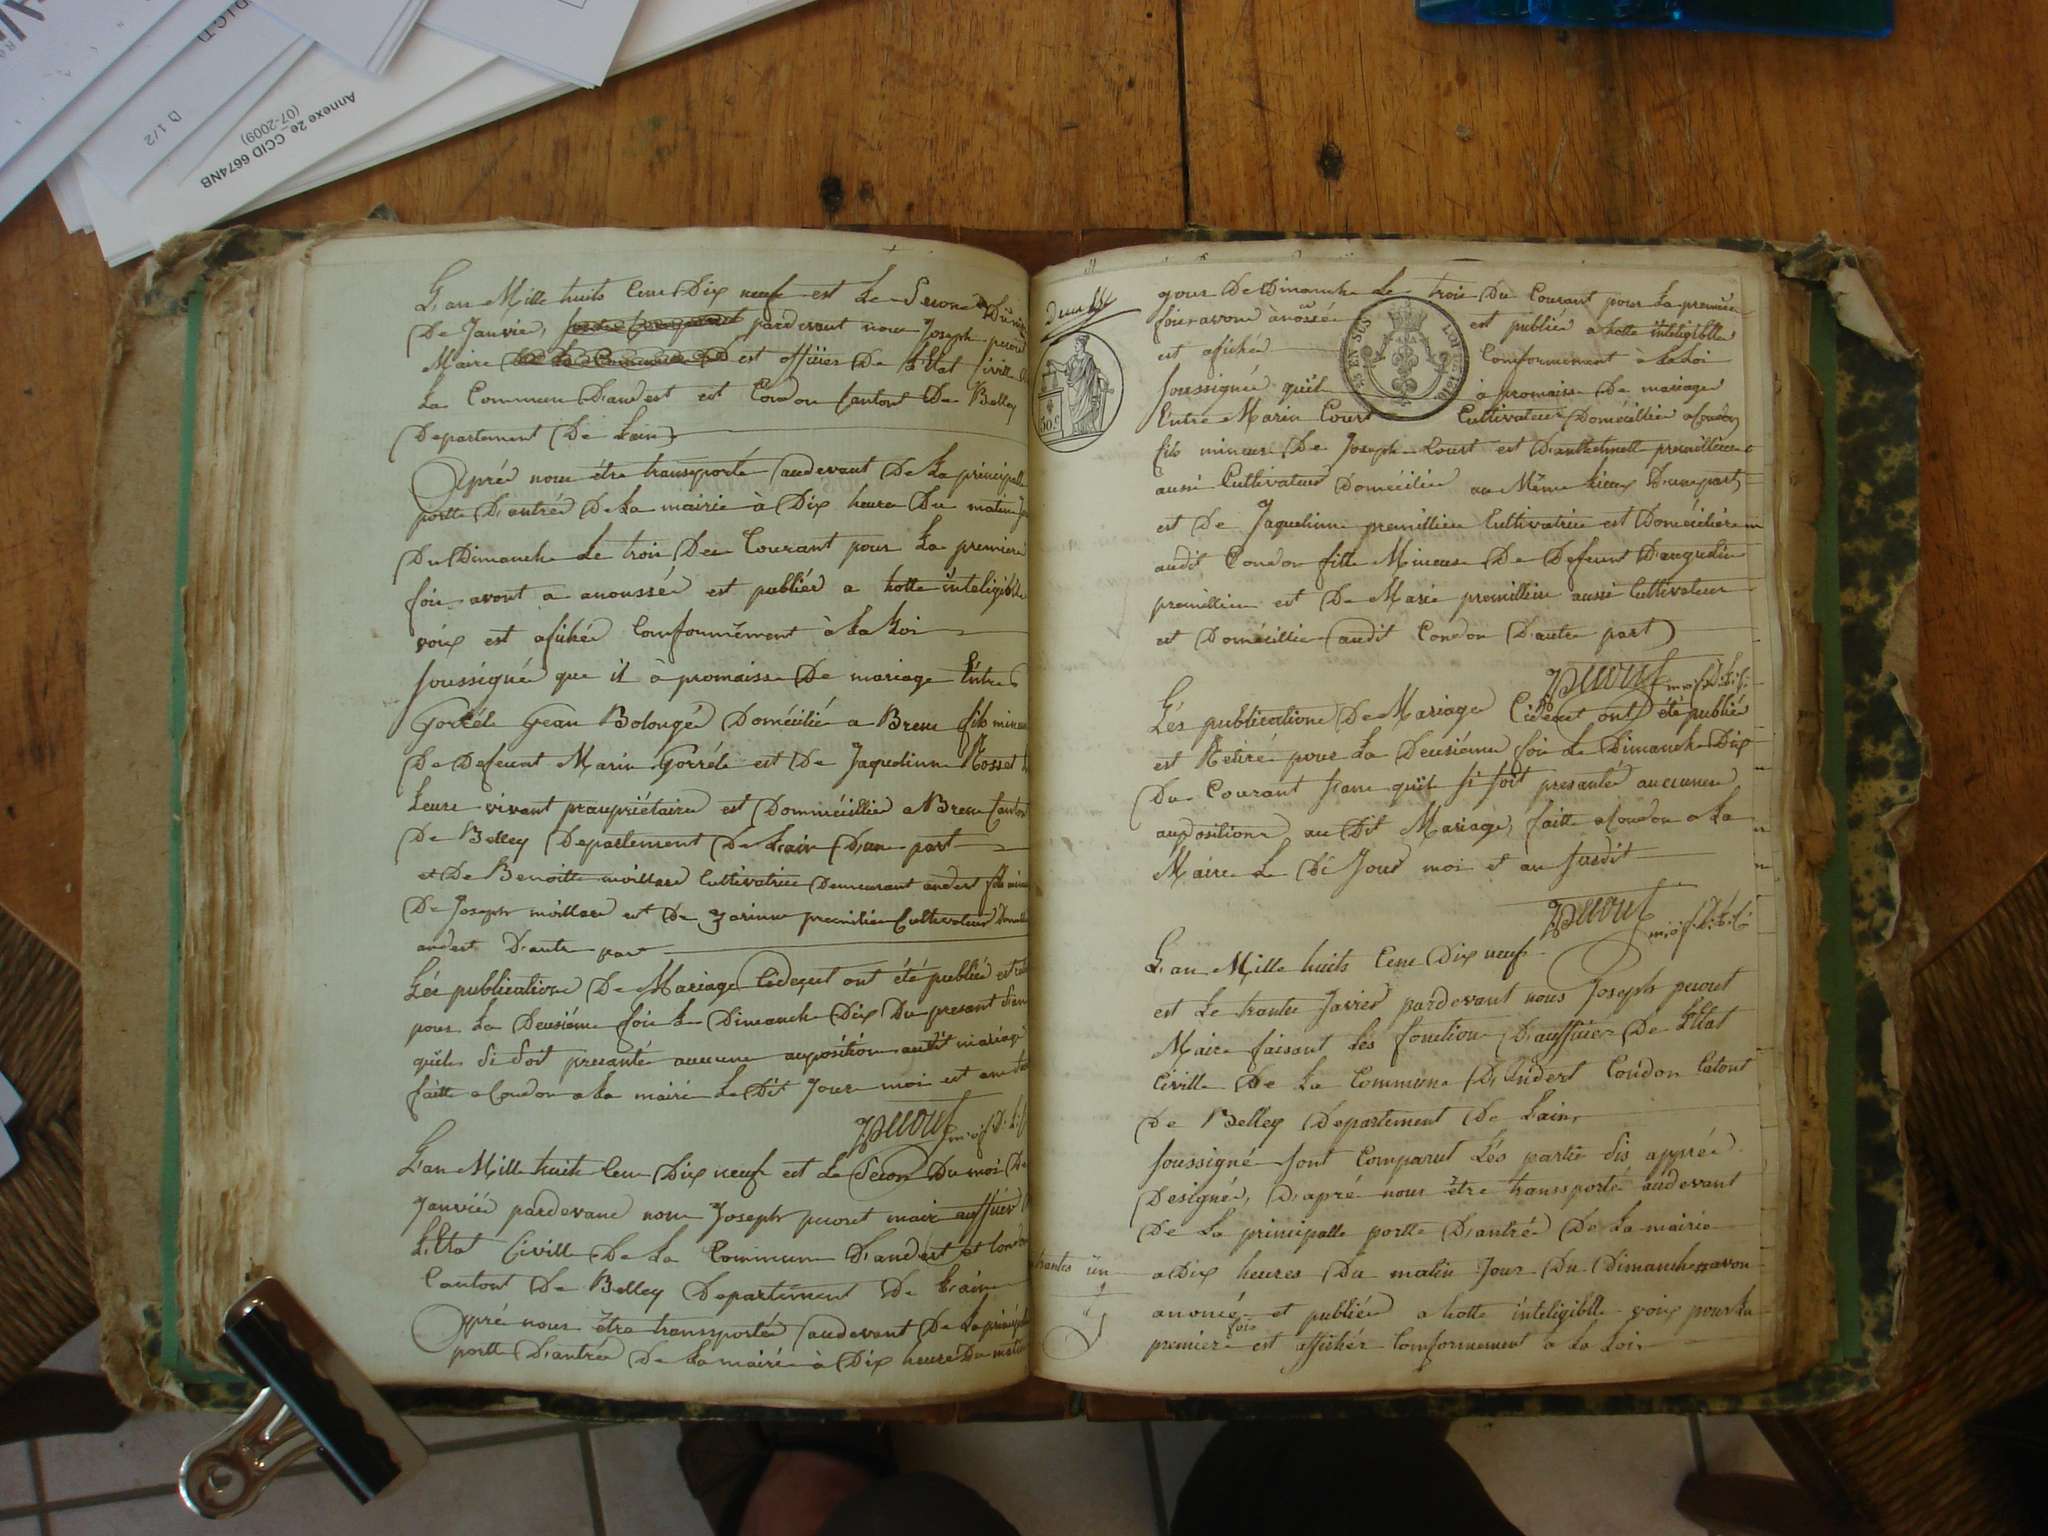 Annexe 2e_CCID 6674NB
(07-2009)
D 1/2
L'an Mille huits Cent Dix neuf est Le Second Du
De Janvié, pardevant nous Joseph peronet
Maire est offiiés De L'Etat Civille
La Commun D'andert est Condon Canton De Belley
Departement De Lain
Aprée nous être transporté audevant De La principalle
portte D'antrée De La mairie à Dix heure Du matin
Du Dimanche Le trois Du Courant pour La premiere
fois avont a anoussé est publiée a hotte inteligiblle
voix est afichée Comformément à La Loi
soussignée que il à promaisse De mariage Entre
Gorrél Jean Bolongé Doméciliée a Brens fils mineur
De Defeunt Marin Gorrél est De Jaqueline Rosset
Leure vivant praupriétaire est Domméeillié a Brens Canton
De Belley Departement De Lain D'une part
et De Benoitte moillare Cultivatrice Demeurant andert fille
De Joseph moillare est De premilieu Cultivateur
andert D'autre part
Lés publications De Mariage Cideçut ont été publiée est
pour La Deusiéme fois Le Dimanche Dix Du presant
quils Si Soit presantée aucune auposition audit mariage
faitte a Condon a La mairi Le Dit Jour moi est an
L'an Mille huits Cent Dix neuf est Le Second Du moi De
Janviée pardevant nous Joseph peronet mair auffiiér
L'Etat Civille De La Commune D'andert et Condon
Cantont De Belley Departement De Lain
Appré nous être transportée audevant De La principalle
portte D'antrée De La mairie à Dix heure Du matin
50 c.
jour De Dimanche Le trois Du Courant pour La premiere
fois avons anossée est publiée a hotte inteligiblle
est afichée Comformement à La Loi
soussignée quil à promaisse De mariage
Entre Marin Court Cultivateur Doméeillié a Condon
fils mineur De Joseph Court est D'anthelmette premillieu
aussi Cultivateur Domécilié au Même Lieux D'une part
est De Jaquelinne premillieu Cultivatrice est Doméciliée
audit Condon fille Mineure De Defeunt D'augustin
premillieu est De Marie premillieu aussi Cultivateur
est Doméeillié audit Condon D'autre part
Lés publications De Mariage Cideçut ont été publié
est Retiré pour La Deusiéme fois Le Dimanche Dix
Du Courant sans quil si soit presanté aucunne
auposition au Dit Mariage, faitte a Condon a La
Mairie Le Di Jour moi et an susdit
L'an Mille huits Cent Dix neuf
est Le trante Javier pardevant nous Joseph peronet
Maire faisant Lés fonction D'auffiiér De L'Etat
Civille De La Commune D'Andert Condon Catont
De Belley Departement De Lain
soussigné sont Comparut Lés partie Sis apprée
Designée, D'apré nous être transsporté audevant
De La principalle portte D'antrée De La mairie
a Dix heures Du matin Jour Du Dimanche avon
trantes un
anoncé et publiée a hotte inteligiblle voix pour La
premiere fois est affichér Comformement a La Loi